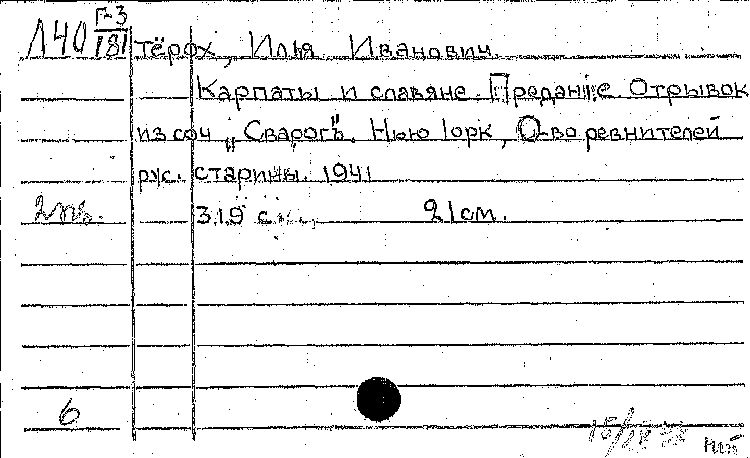 Л40 Г-3/181 Тёрох, Илья Иванович.
Карпаты и славяне. Преданiе. Отрывок
из соч „Сварогъ". Нью Iорк, О-во ревнителей
рус. старины. 1941
2 экз. 319 с. 21 см.
6